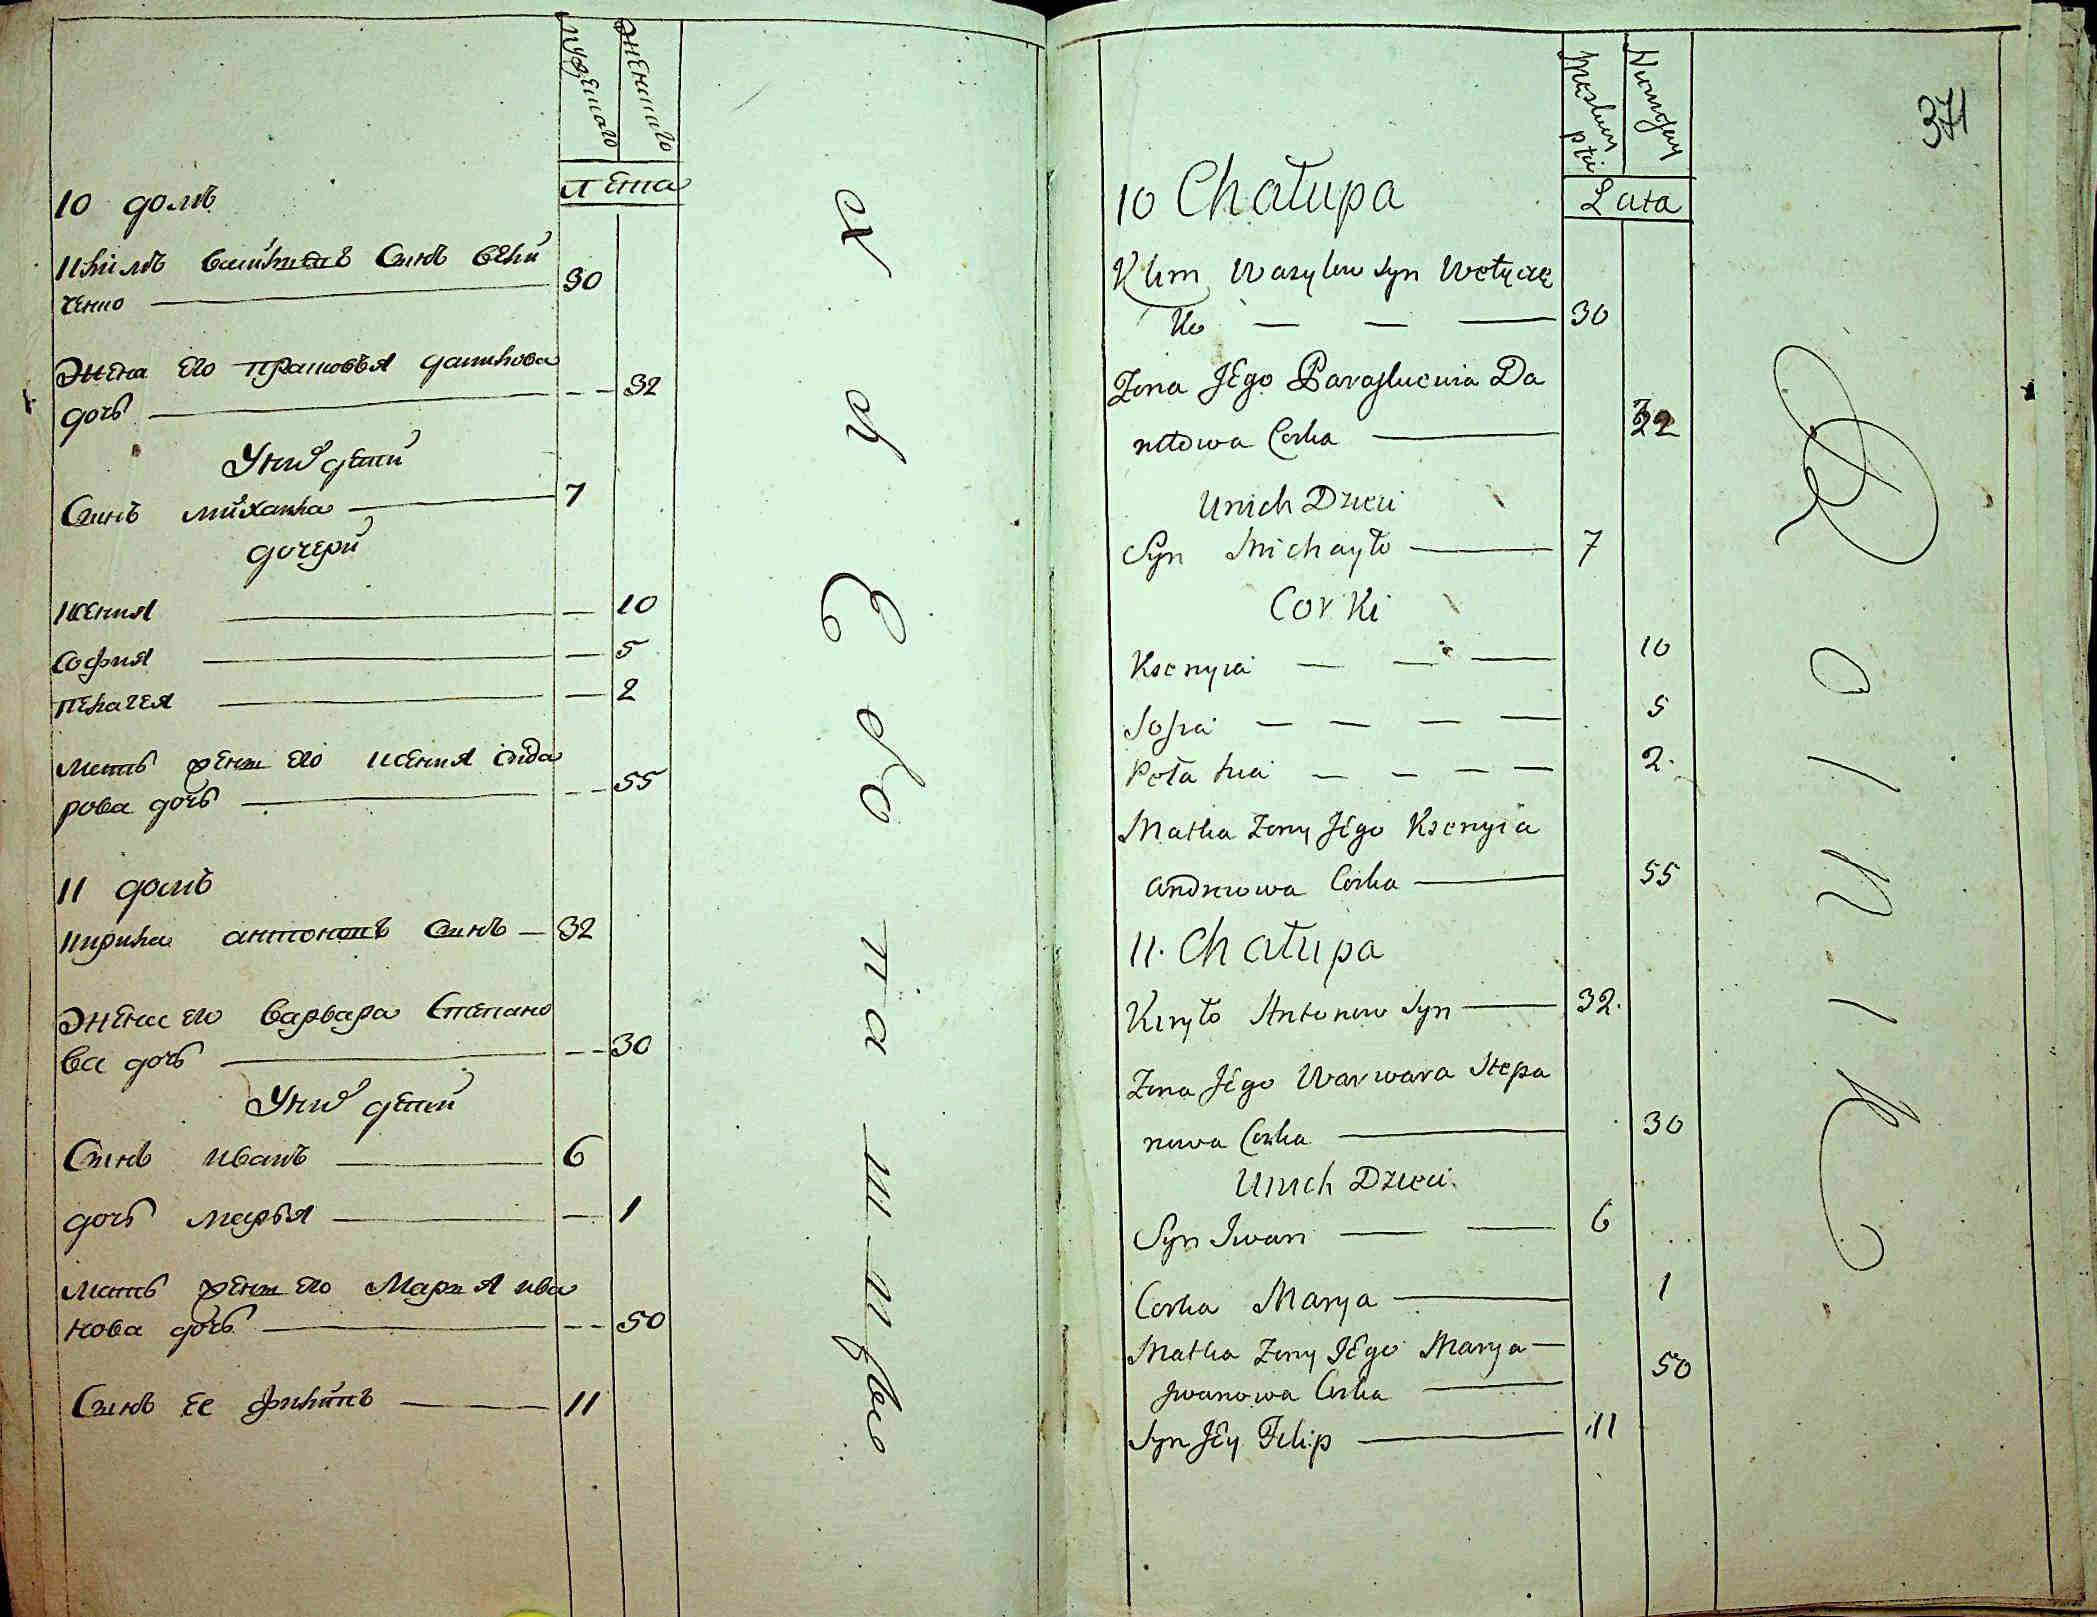 мужеска
женска
Лета
10 домъ
Климъ василивъ Синъ вели
ченко 30
Жена его прасковья данилова
дочь 32
У них дети
Синъ михайла 7
дочери
ксения 10
софия 5
пелагея 2
мать жены его ксения сида
рова дочь 55
11 домъ
кирила антоновъ синъ 32
Жена его варвара Степано
ва дочь 30
У них дети
Синъ иванъ 6
дочь марья 1
мать жены его Мария ива
нова дочь 50
Синъ ее филипъ 11
37
Lata
10 Chałupa
Klim Wasylow syn Welycze
ko 30
Zona Jego Paraskewia Da
niłowa Corka 32
Unich Dzieci
Syn Michayło 7
Corki
Ksenyia 10
Sofia 5
Pełahia 2
Matka Zony Jego Ksenyia
Andreiowa Corka 55
11. Chałupa
Kiryło Antonow Syn 32.
Zona Jego Warwara Stepa
nowa Corka 30
Unich Dzieci.
Syn Iwan 6
Corka Marya 1
Matka Zony JEgo Marya
Jwanowa Corka 50
Syn JEy Filip 11